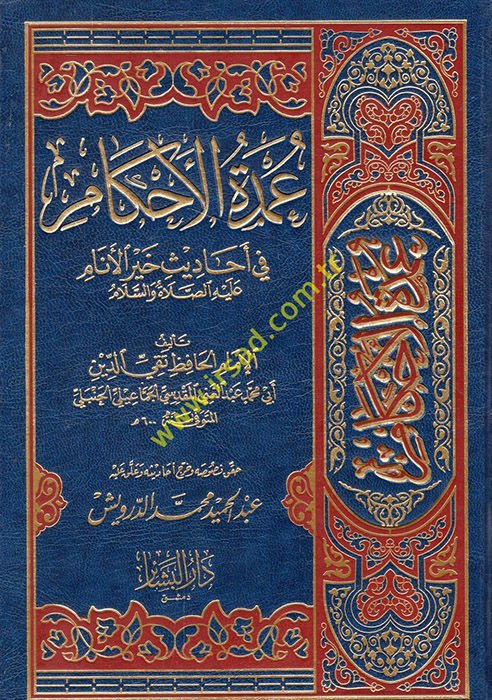 عُمْدَةُ الأَحْكَامِ
في أحَاديثِ خَيْرِ الأَنَامِ
عَلَيْهِ الصَّلَاةُ وَالسَّلَامُ
تأليف
الإمام الحافظ تقي الدّين
أبي محمد عبد الغني المقدسي الجماعيلي الحنبلي
المتوفى سنة ٦٠٠ هـ
حقق نصوصه وخرج أحاديثه وعلق عليه
عبد الحميد محمد الدرويش
دار البشائر
دمشق
عمدة الأحكام
www.irsad.com.tr